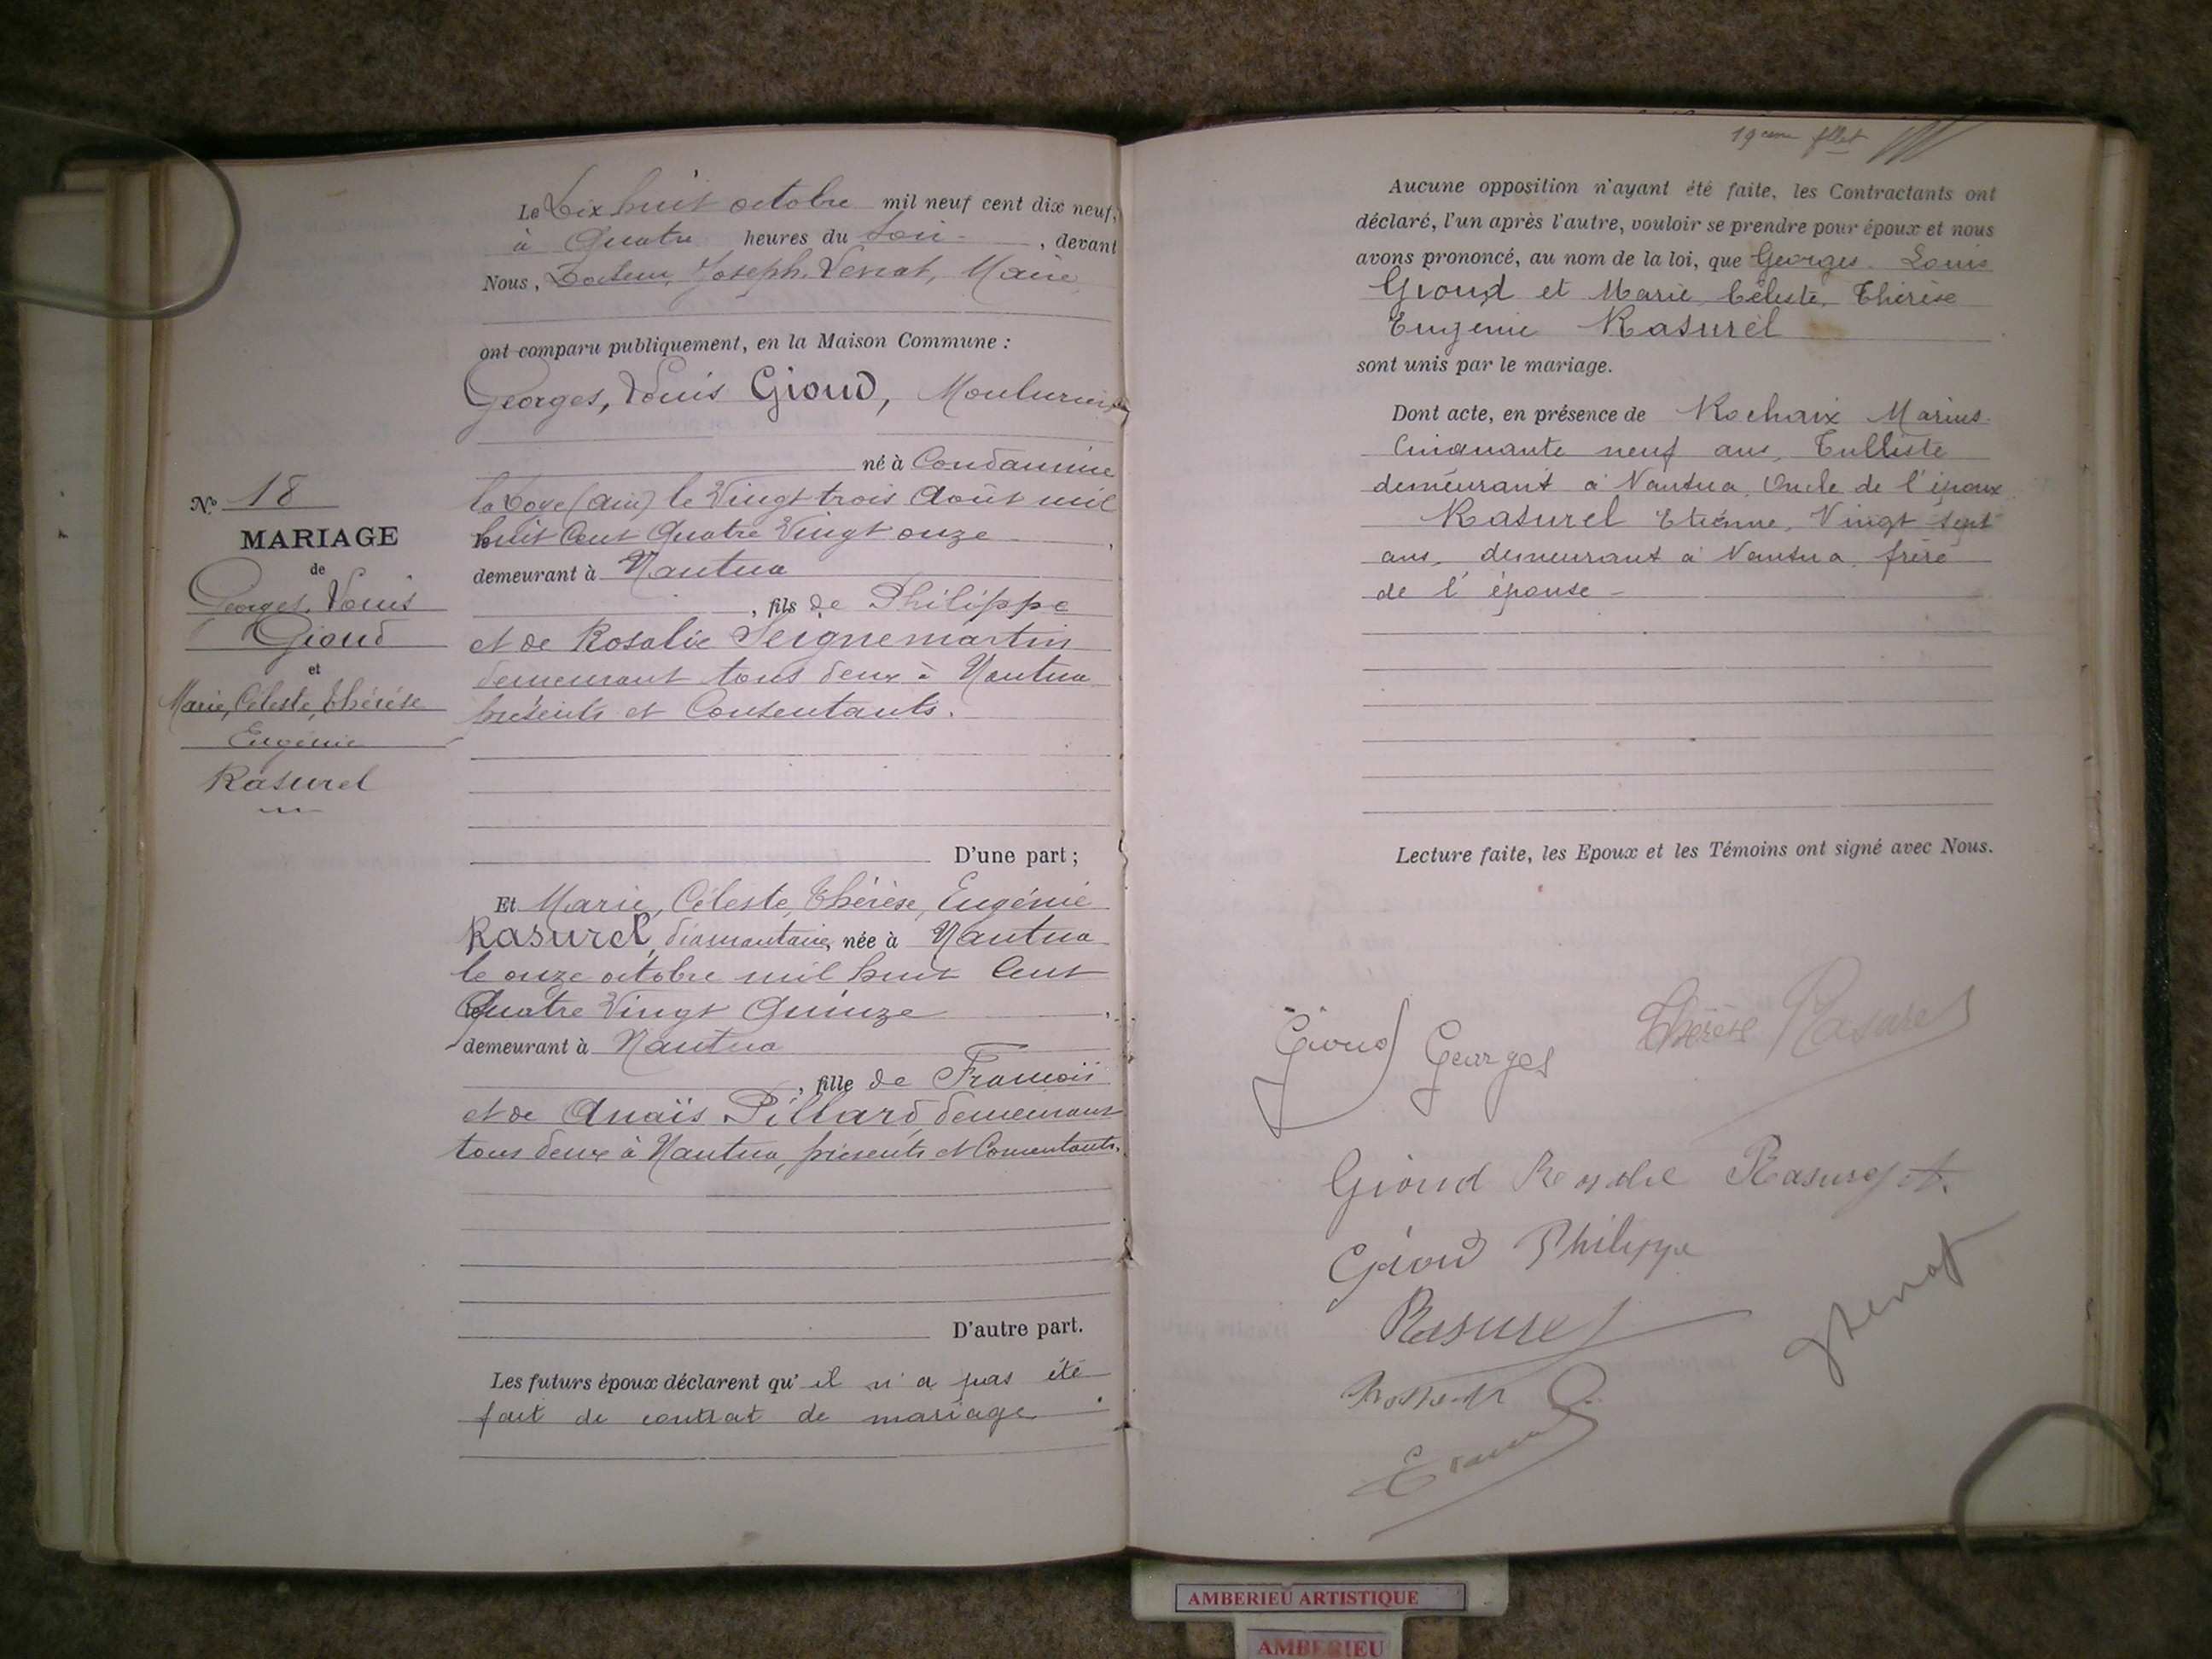 Le Dix huit octobre mil neuf cent dix neuf,
à Quatre heures du Soir, devant
Nous, Docteur Joseph, Maire
ont comparu publiquement, en la Maison Commune :
Georges, Louis Gioud,
né à Condamine
la Doye (Ain) le Vingt trois Août mil
huit Cent Quatre Vingt onze,
demeurant à Nantua
, fils de Philippe
et de Rosalie Seignemartin
demeurant tous deux à Nantua
présents et Consentants.
D'une part ;
N° 18
MARIAGE
de
Georges, Louis
Gioud
et
Marie, Céleste, Thérèse
Eugénie
Rasurel
Et Marie, Céleste, Thérèse, Eugénie
Rasurel, diamantaire, née à Nantua
le onze octobre mil huit Cent
Quatre Vingt Quinze,
demeurant à Nantua
, fille de François
et de Anaïs Pillard, demeurant
tous deux à Nantua, présents et Consentants.
D'autre part.
Les futurs époux déclarent qu'il n'a pas été
fait de contrat de mariage.
19eme
Aucune opposition n'ayant été faite, les Contractants ont
déclaré, l'un après l'autre, vouloir se prendre pour époux et nous
avons prononcé, au nom de la loi, que Georges Louis
Gioud et Marie, Céleste, Thérèse
Eugénie Rasurel
sont unis par le mariage.
Dont acte, en présence de Rochaix Marius
Cinquante neuf ans, Tulliste
demeurant à Nantua, Oncle de l'époux
Rasurel Etienne, Vingt sept
ans, demeurant à Nantua, frère
de l'épouse -
Lecture faite, les Epoux et les Témoins ont signé avec Nous.
Gioud Georges
Thérèse Rasurel
Gioud Rasurel A.
Gioud Philippe
Rasurel
AMBERIEU ARTISTIQUE
AMBERIEU